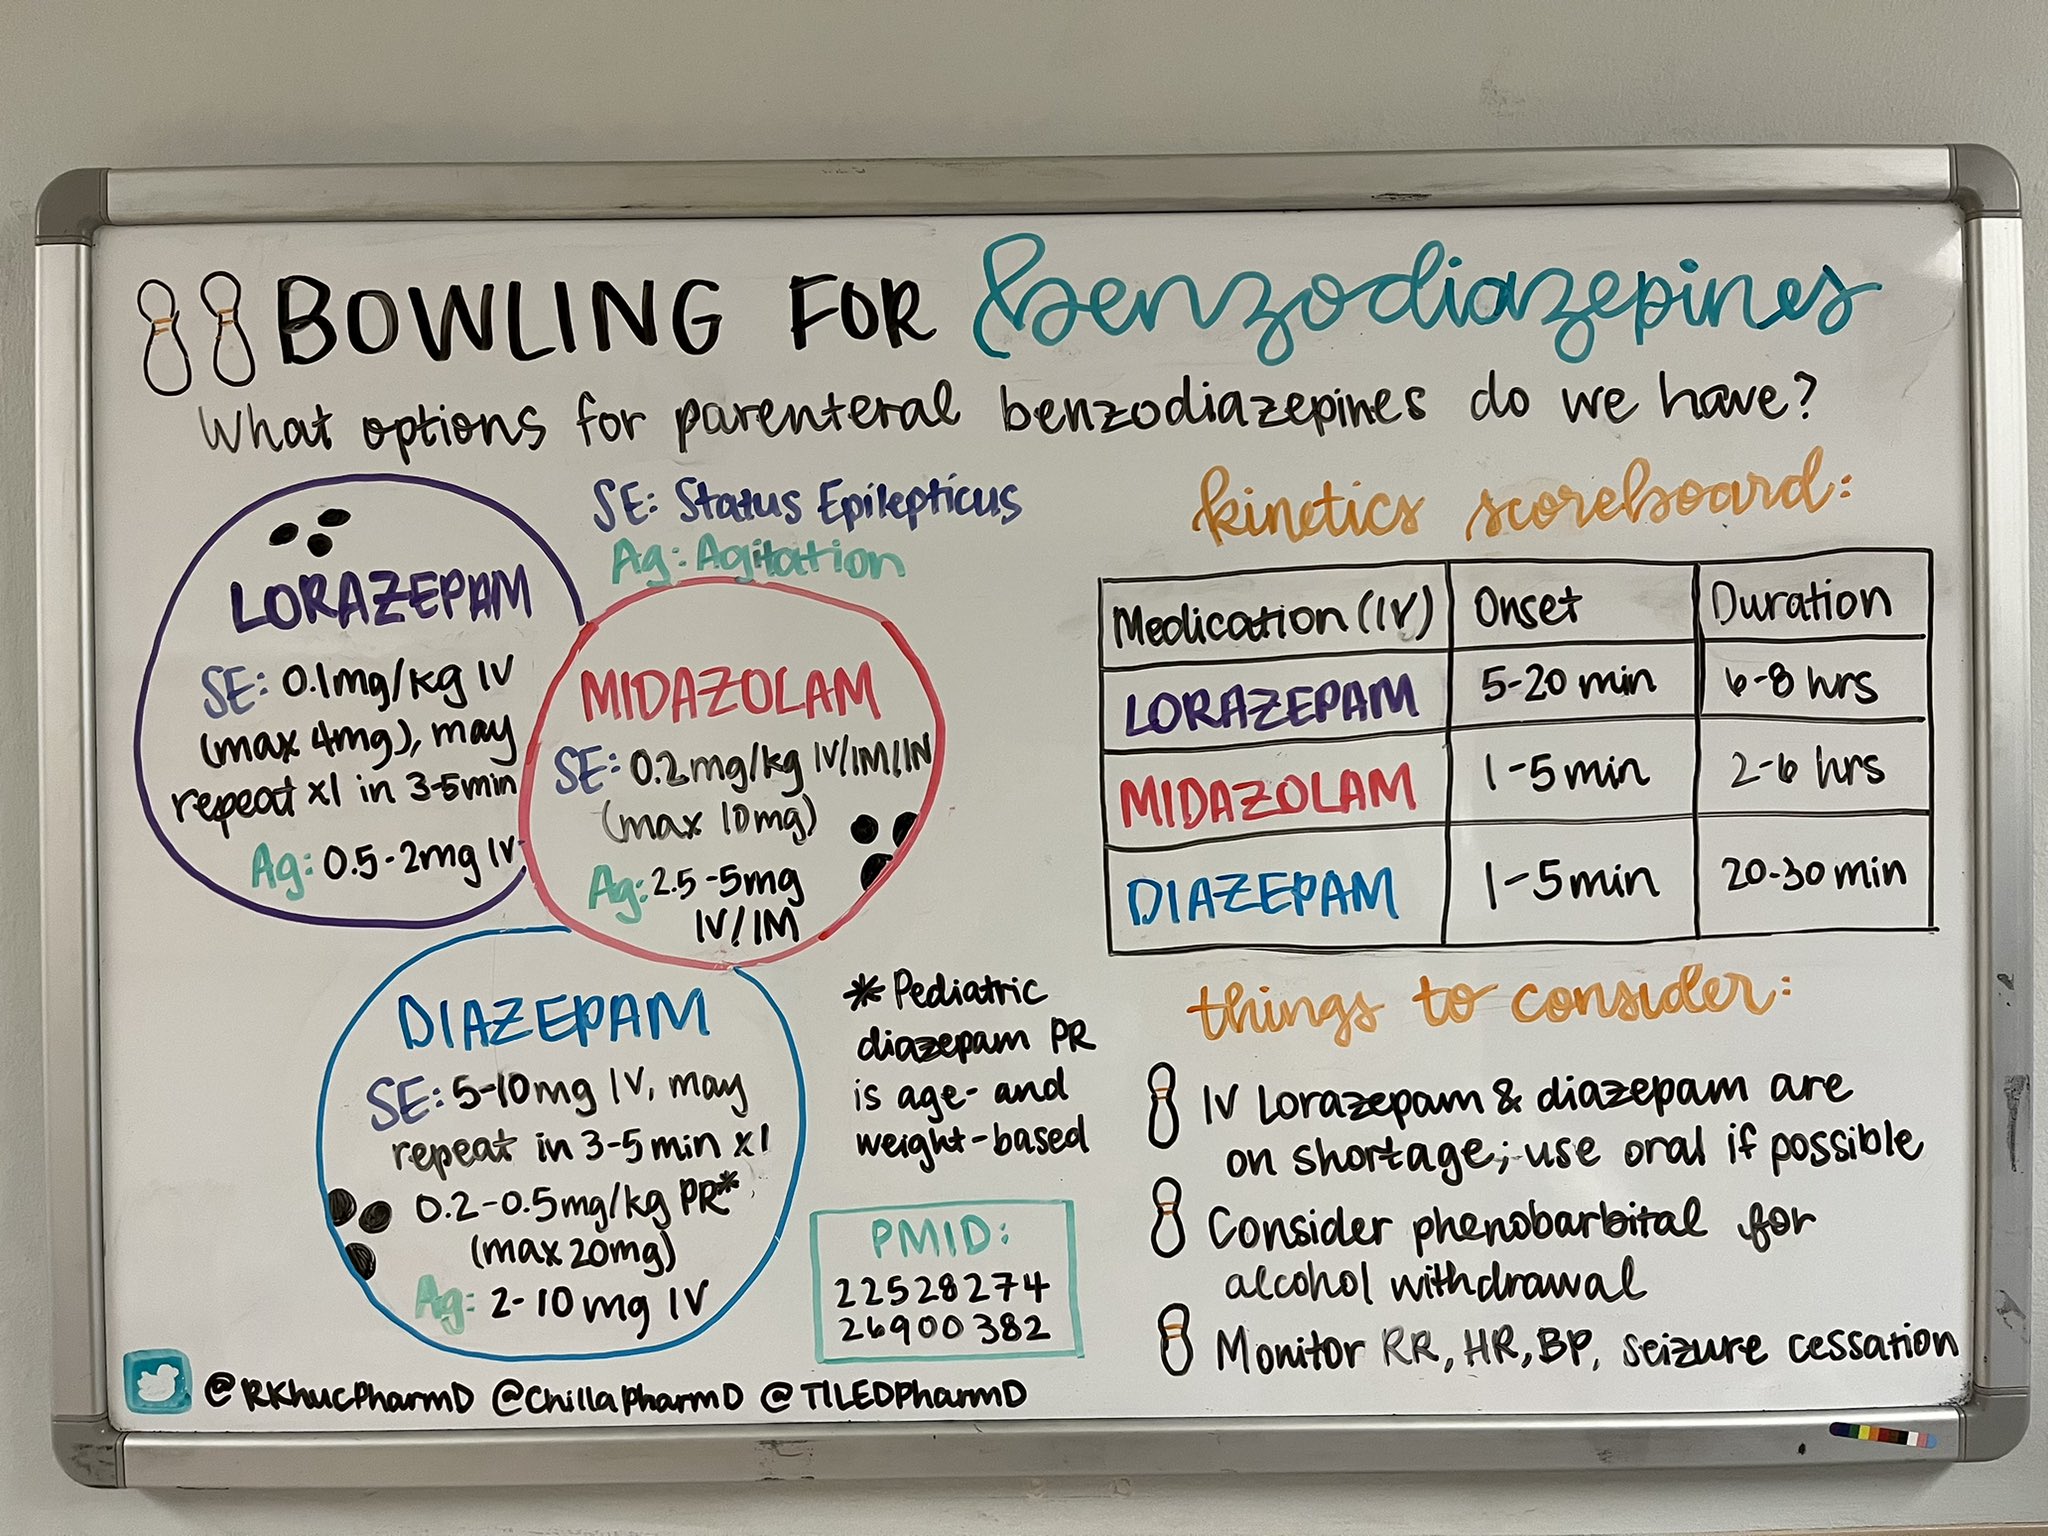 BOWLING FOR benzodiazepines
What options for parenteral benzodiazepines do we have?
SE: Status Epilepticus
Ag: Agitation
LORAZEPAM
SE: 0.1mg/kg IV
(max 4mg), may
repeat x1 in 3-5min
Ag: 0.5-2mg IV
MIDAZOLAM
SE: 0.2mg/kg IV/IM/IN
(max 10mg)
Ag: 2.5-5mg
IV/IM
DIAZEPAM
SE: 5-10mg IV, may
repeat in 3-5min x1
0.2-0.5mg/kg PR*
(max 20mg)
Ag: 2-10mg IV
* Pediatric
diazepam PR
is age- and
weight-based
PMID:
22528274
26900382
kinetics scoreboard:
Medication (IV) Onset Duration
LORAZEPAM 5-20 min 6-8 hrs
MIDAZOLAM 1-5min 2-6 hrs
DIAZEPAM 1-5min 20-30 min
things to consider:
IV Lorazepam & diazepam are
on shortage; use oral if possible
Consider phenobarbital for
alcohol withdrawal
Monitor RR, HR, BP, seizure cessation
@RKhucPharmD @ChillaPharmD @TLEDPharmD